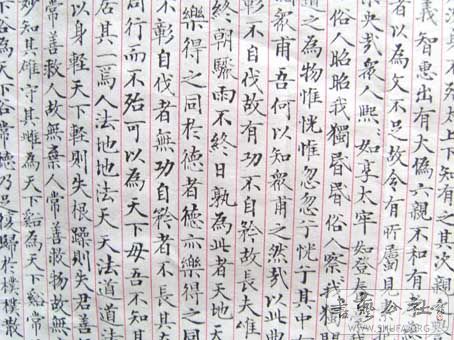 不殆太上下知有之其次親
義智惠出有大偽六親不和有
者以為文不足故令有所屬見素
央哉眾人熙熙如享太牢如登
俗人昭昭我獨昏昏俗人察我獨悶
道之為物惟恍惟忽忽于恍其中有
眾甫吾何以知眾甫之然哉以此曲
彰不自伐故有功不自矜故長夫唯
終朝驟雨不終日孰為此者天地天
樂得之同於德者德亦樂得之同
不彰自伐者無功自矜者不長其
周行而不殆可以為天下母吾不知其
居其一焉人法地地法天天法道道法
以身輕天下輕則失根躁則失君善
常善救人故無棄人常善救物故無
妙知其雄守其雌為天下谿為天下谿常
下谷為天下谷常德乃足復歸於樸樸散
書藝公社
WWW.SHUFA.ORG